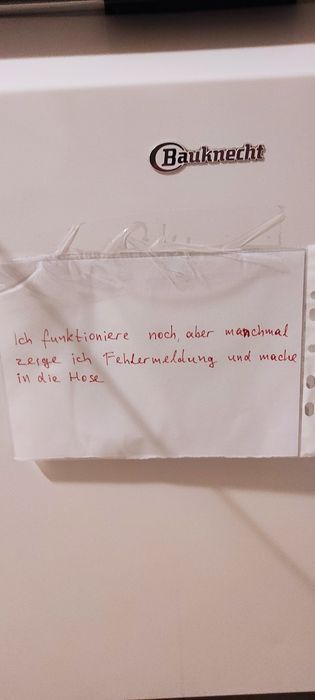 Bauknecht
Ich funktioniere noch, aber manchmal
zeige ich Fehlermeldung und mache
in die Hose